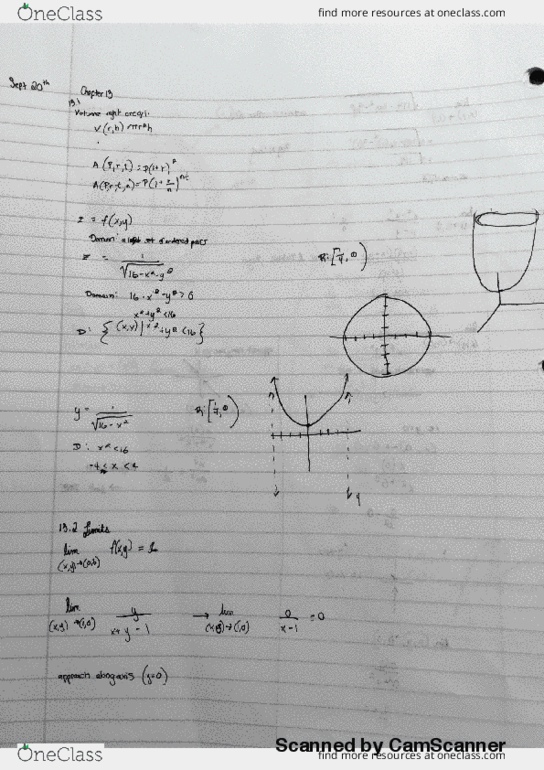 OneClass
find more resources at oneclass.com
Sept. 20th
Chapter 13
13.1
Volume right
V(r,h) = πr²h
A(P,r,t) = P(1+r)^t
A(P,r,t,n) = P(1+r/n)^nt
z = f(x,y)
Domain: set of ordered pairs
z = 1/√(16-x²-y²)
R: [1/4, ∞)
Domain: 16-x²-y²>0
x²+y²<16
D: {(x,y)|x²+y²<16}
y = 1/√(16-x²)
R: [1/4, ∞)
D: x²<16
-4<x<4
13.2 Limits
lim (x,y)→(a,b) f(x,y) = L
lim (x,y)→(1,0) y/(x+y-1) → lim (x,y)→(1,0) 0/(x-1) = 0
approach along axis (y=0)
Scanned by CamScanner
OneClass
find more resources at oneclass.com